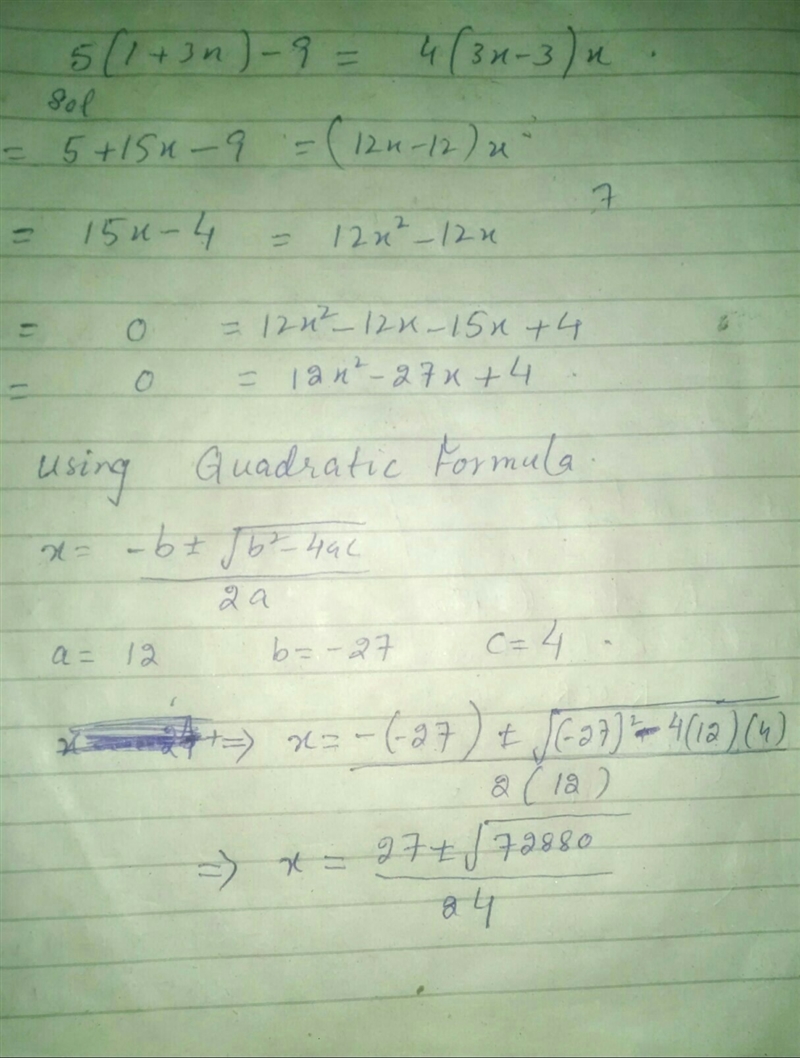 5(1+3x)-9 = 4(3x-3)x .
Sol
= 5+15x-9 = (12x-12)x
7
= 15x-4 = 12x²-12x
= 0 = 12x²-12x-15x+4
= 0 = 12x²-27x+4 .
using Quadratic Formula.
x = -b ± √b²-4ac
2a
a = 12 b = -27 c = 4 .
⇒ x = -(-27) ± √(-27)² - 4(12)(4)
2(12)
⇒ x = 27 ± √72880
24